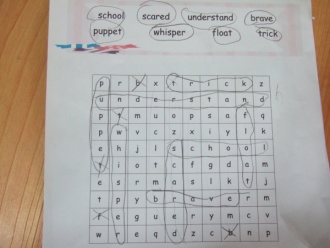 school scared understand brave
puppet whisper float trick
p r b x t r i c k z
u n d e r s t a n d
p t m u o p s a f q
p w v c z x i y l k
e h j l s c h o o l
t i o t c f g d a m
e s r m a s l k t j
t p y b r a v e r m
f e g u e r y m c v
w r e q d z c n p